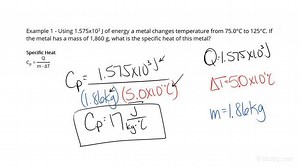 Example 1 - Using 1.575x10³ J of energy a metal changes temperature from 75.0°C to 125°C. If
the metal has a mass of 1,860 g, what is the specific heat of this metal?
Specific Heat
Cₚ = Q / m · ΔT
Cₚ = 1.575x10³ J / (1.86kg)(5.0x10¹°C)
Cₚ = 17 J / kg·°C
Q = 1.575x10³ J
ΔT = 5.0x10¹°C
m = 1.86kg